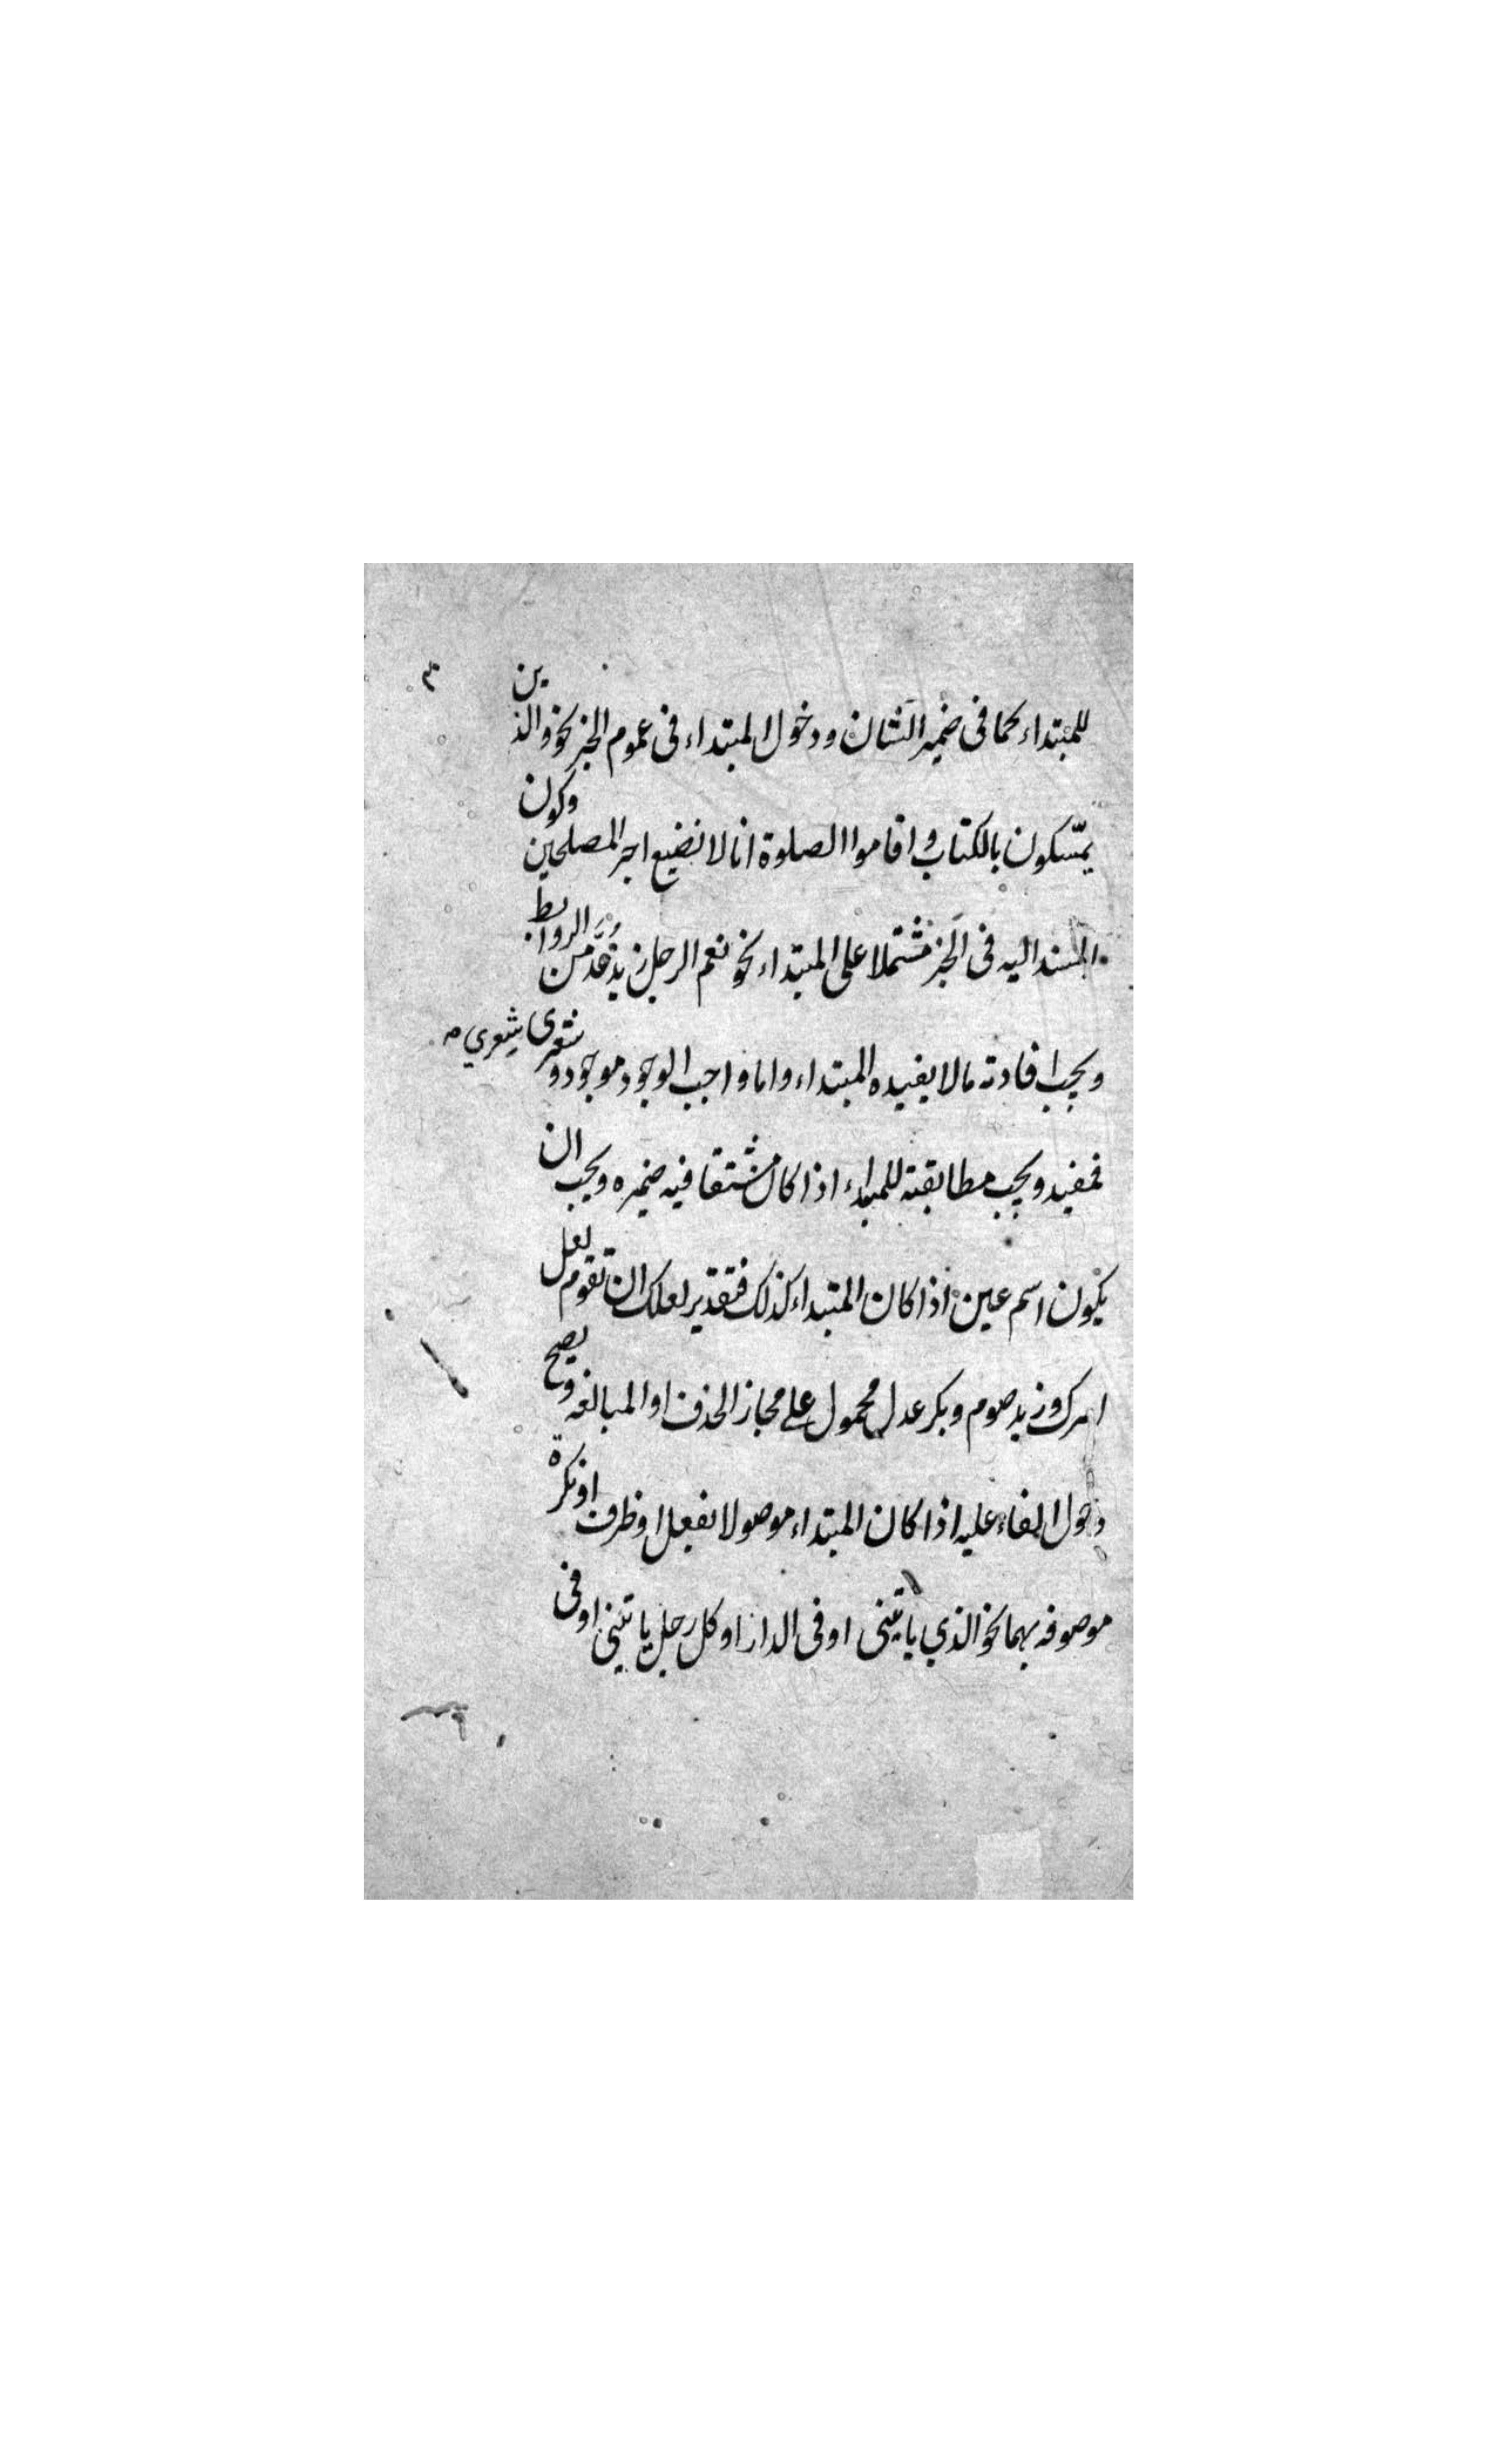 للمبتداء كما فى ضمير الشان ودخول المبتداء فى عموم الخبر نحو والذين
يمسّكون بالكتاب و اقاموا الصلوة انا لا نضيع اجر المصلحين وكون
المسند اليه فى الخبر مشتملا على المبتداء نحو نعم الرجل زيد عُدَّ من الروابط
ويجب افادته ما لا يفيده المبتداء واما واجب الوجود موجود و شعرى شعري
فمفيد ويجب مطابقته للمبتداء اذا كان مشتقا فيه ضميره ويجب ان
يكون اسم عين اذا كان المبتداء كذلك فتقدير لعلك ان تقوم لعل
امرك وزيد صوم وبكر عدل محمول على مجاز الحذف او المبالغه ويصح
دخول الفاء عليه اذا كان المبتداء موصولا بفعل او ظرف او نكرة
موصوفه بهما نحو الذي ياتينى او فى الدار او كل رجل ياتينى او فى